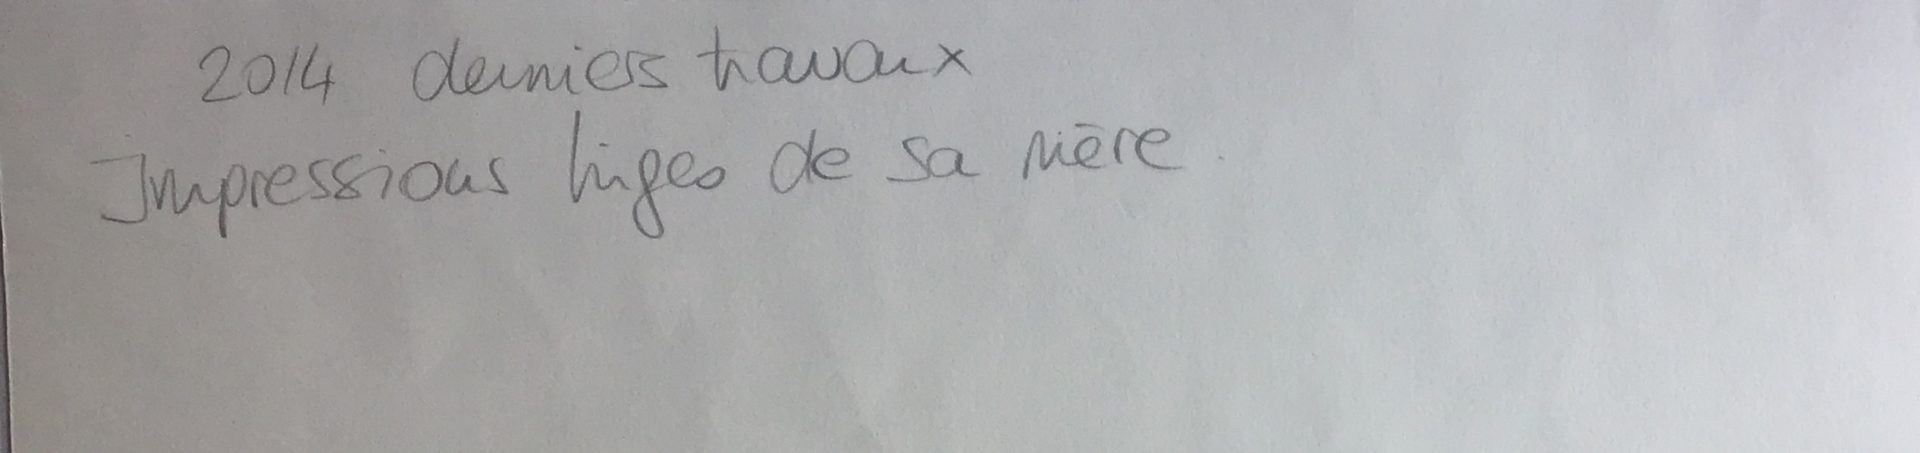 2014 derniers travaux
Impressions linges de sa mère.